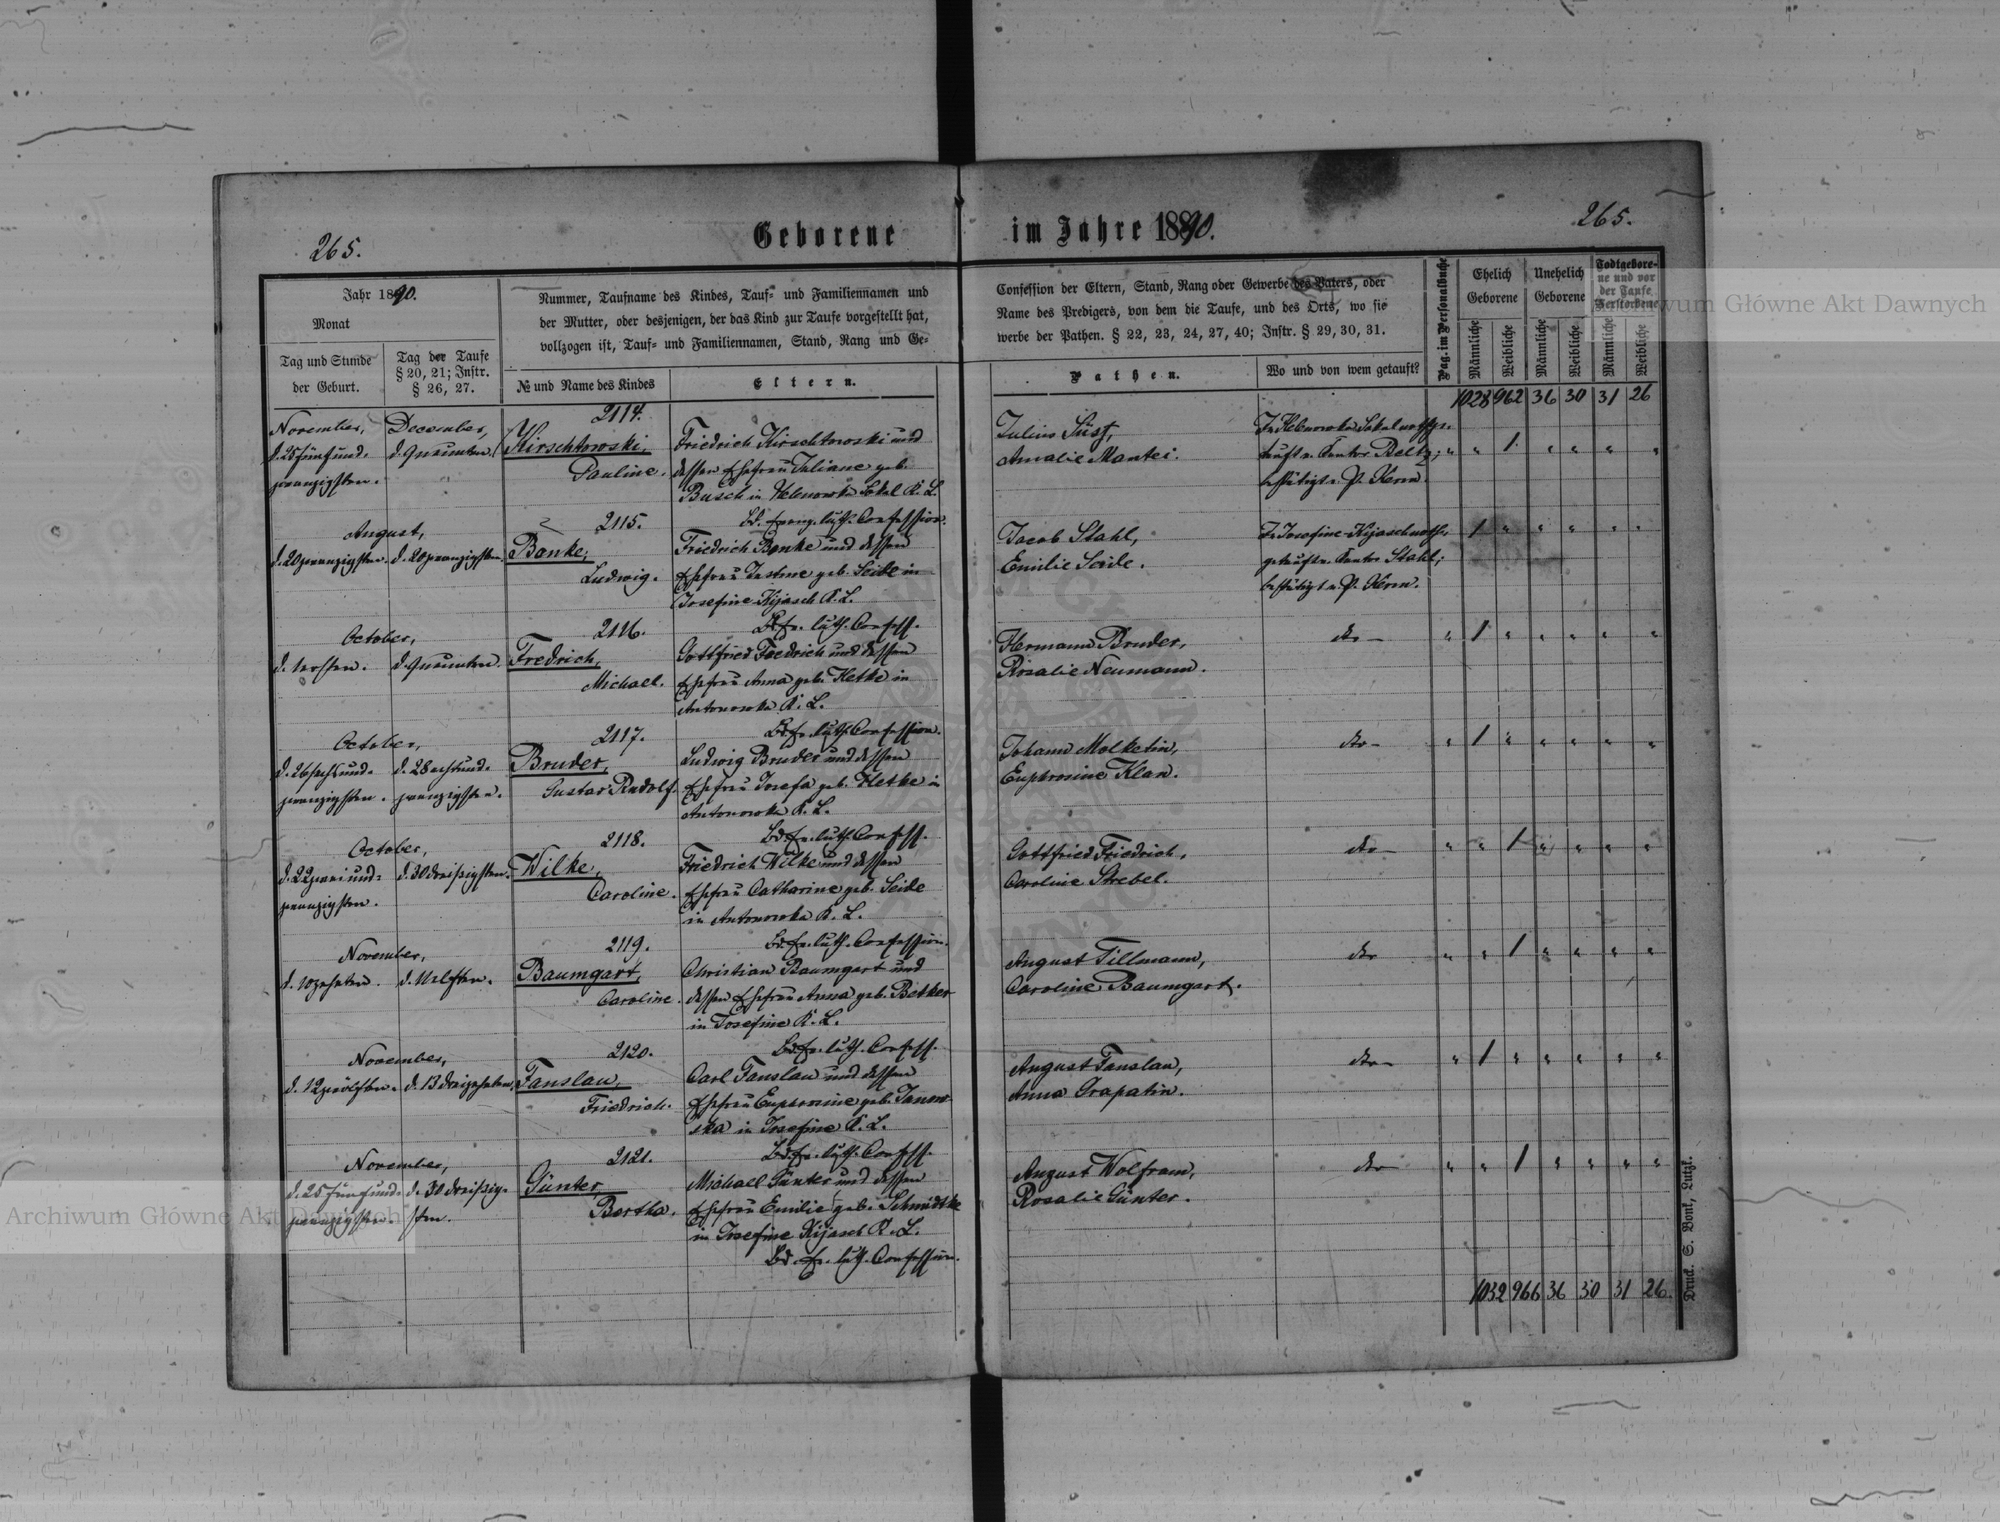 265.
Geborene
im Jahre 1890.
265.
Jahr 1890.
Monat
Tag und Stunde
der Geburt.
Tag der Taufe
§ 20, 21; Instr.
§ 26, 27.
Nummer, Taufname des Kindes, Tauf- und Familiennamen und
der Mutter, oder desjenigen, der das Kind zur Taufe vorgestellt hat,
vollzogen ist, Tauf- und Familiennamen, Stand, Rang und Ge-
№ und Name des Kindes
Eltern.
Confession der Eltern, Stand, Rang oder Gewerbe des Vaters, oder
Name des Predigers, von dem die Taufe, und des Orts, wo sie
werbe der Pathen. § 22, 23, 24, 27, 40; Instr. § 29, 30, 31.
Pathen.
Wo und von wem getauft?
Pag. im Personalbuche
Ehelich
Geborene
Unehelich
Geborene
Todtgebore-
ne und vor
der Taufe
Verstorbene
Männliche
Weibliche
Männliche
Weibliche
Männliche
Weibliche
1028 962 36 30 31 26
November,
d. 25 fünfund-
zwanzigsten.
December,
d. 9 neunten.
2114.
Kirschtowski,
Pauline.
Friedrich Kirschtowski und
dessen Ehefrau Juliane geb.
Busch in Helenowka Sokal K. L.
Bd. evang. luth. Confession.
Julius Süss,
Amalie Mantei.
In Helenowka Sokal nothge-
tauft v. Kantor Beltz;
bestätigt v. P. Kerm.
" " 1 " " " "
August,
d. 20 zwanzigsten.
d. 20 zwanzigsten.
2115.
Banke,
Ludwig.
Friedrich Banke und dessen
Ehefrau Justine geb. Seide in
Josefine Kijasch K. L.
Bd. ev. luth. Confess.
Jacob Stahl,
Emilie Seide.
In Josefine Kijasch noth-
getauft v. Kantor Stahl;
bestätigt v. P. Kerm.
1 " " " " "
October,
d. 1 ersten.
d. 9 neunten.
2116.
Fredrich,
Michael.
Gottfried Fredrich und dessen
Ehefrau Anna geb. Hetke in
Antonowka K. L.
Bd. ev. luth. Confession.
Hermann Bruder,
Rosalie Neumann.
dto –
" 1 " " " " "
October,
d. 26 sechsund-
zwanzigsten.
d. 28 achtund-
zwanzigsten.
2117.
Bruder,
Gustav Rudolf.
Ludwig Bruder und dessen
Ehefrau Josefa geb. Hetke in
Antonowka K. L.
Bd. ev. luth. Confess.
Johann Molketin,
Euphrosine Klan.
dto –
" 1 " " " " "
October,
d. 22 zweiund-
zwanzigsten.
d. 30 dreißigsten.
2118.
Wilke,
Caroline.
Friedrich Wilke und dessen
Ehefrau Catharine geb. Seide
in Antonowka K. L.
Bd. ev. luth. Confession.
Gottfried Friedrich,
Caroline Strebel.
dto –
" " 1 " " " "
November,
d. 10 zehnten.
d. 11 elften.
2119.
Baumgart,
Caroline.
Christian Baumgart und
dessen Ehefrau Anna geb. Betker
in Josefine K. L.
Bd. ev. luth. Confess.
August Tillmann,
Caroline Baumgart.
dto
" " 1 " " " "
November,
d. 12 zwölften.
d. 13 dreizehnten.
2120.
Tanslau,
Friedrich.
Carl Tanslau und dessen
Ehefrau Euphrosine geb. Janow-
ska in Josefine K. L.
Bd. ev. luth. Confess.
August Tanslau,
Anna Grapatin.
dto –
" 1 " " " " "
November,
d. 25 fünfund-
zwanzigsten.
d. 30 dreißig-
sten.
2121.
Günter,
Bertha.
Michael Günter und dessen
Ehefrau Emilie geb. Schmidtke
in Josefine Kijasch K. L.
Bd. ev. luth. Confession.
August Wolfram,
Rosalie Günter.
dto
" " 1 " " " "
1032 966 36 30 31 26.
Druck. S. Bonk, Lutzk.
Archiwum Główne Akt Dawnych
Archiwum Główne Akt Dawnych